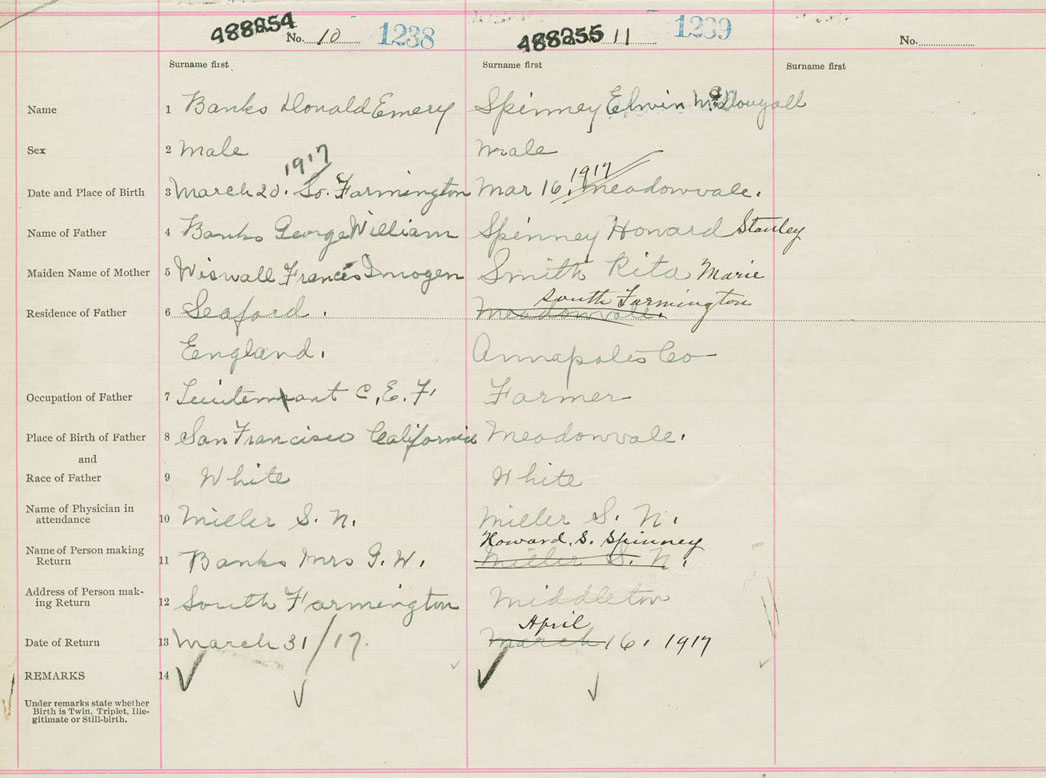 488254 No. 10 1238 488255 11 1239 No.
Surname first Surname first Surname first
Name 1 Banks Donald Emery Spinney Elwin McDougall
Sex 2 Male Male
1917 1917
Date and Place of Birth 3 March 20. So. Farmington Mar 16. Meadowvale.
Name of Father 4 Banks George William Spinney Howard Stanley
Maiden Name of Mother 5 Wiswall Francis Imogen Smith Rita Marie
South Farmington
Residence of Father 6 Seaford. Meadowvale.
England. Annapolis Co
Occupation of Father 7 Lieutenant C.E.F. Farmer
Place of Birth of Father 8 San Francisco California Meadowvale.
and
Race of Father 9 White White
Name of Physician in
attendance 10 Miller S. N. Miller S. N.
Howard. S. Spinney
Name of Person making
Return 11 Banks Mrs G. W. Miller S. N.
Address of Person mak-
ing Return 12 South Farmington Middleton
April
Date of Return 13 March 31/17. March 16. 1917
REMARKS 14 ✓ ✓
Under remarks state whether
Birth is Twin, Triplet, Ille-
gitimate or Still-birth.